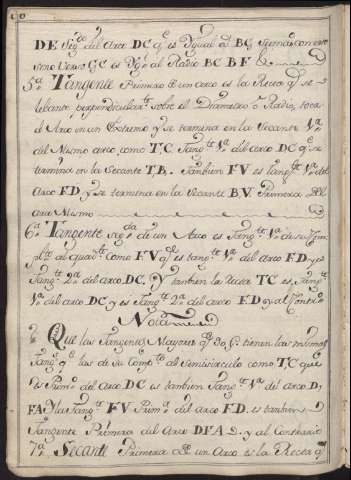 DE Seg.do del Arco DC q.e es Ygual á BG, Sumado con otro
seno Verso GC es Yg.l al Radio BC BF
5.a Tangente Primera de un arco es la Recta q.e se
levanta perpendicularm.te sobre el Diametro o Radio, toca
el Arco en un Estremo y se termina en la Secante 1.a
del Mismo arco, como T,C Tang.te 1.a del arco DC q.e se
termina en la Secante T,B. Tambien FV es tang.te 1.a del
Arco F.D y se termina en la Secante B.V. Primera del
arco Mismo
6.a Tangente seg.da de un Arco es Tang.te 1.a de su Com
plto al quadte como FV q.e es tang.te 1.a del arco F.D y
Tang.te 2.a del arco DC, Y tambien la Recta T.C es Tang.te
1.a del arco DC y es Tang.te 2.a del arco F.D y al Contrario
Notase
Que las Tangentes Mayores q.e 90 G.s tienen las mismas
Tang.s q.e las de su Comp.to al Semicirculo como T,C que
es Prim.a del Arco DC es tambien Tang.te 1.a del arco D,
F,A Y la Tang.te FV Prim.a del arco F.D. es tambien
Tangente Primera del Arco DFA y al Contrario
7.a Secante Primera de un Arco es la Recta q.e